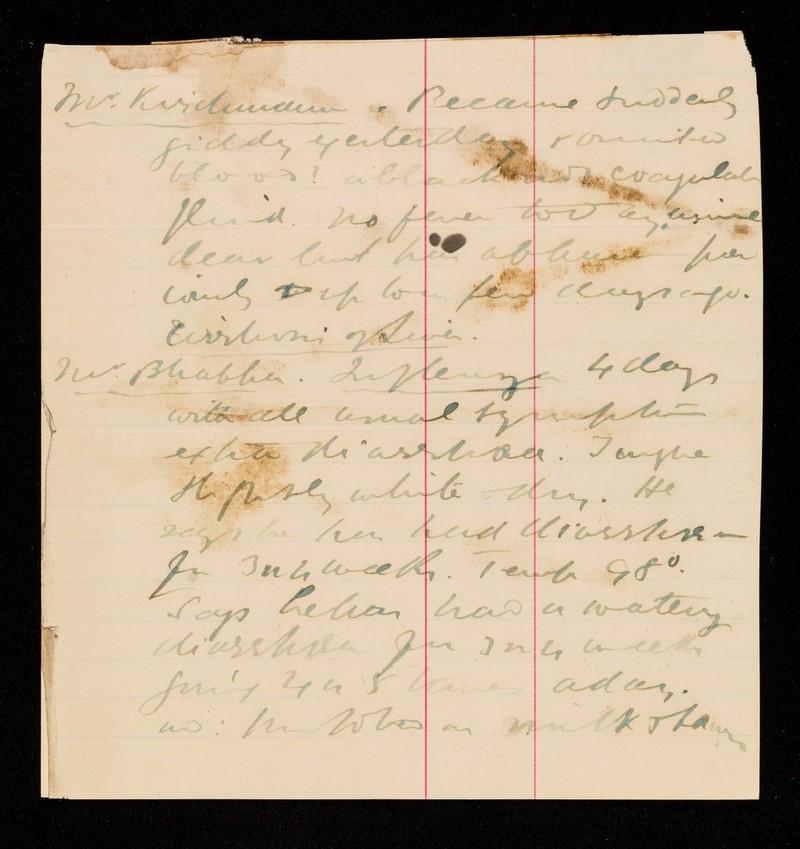 Mr. Krishnama. Became suddenly
giddy yesterday & vomited
blood! a black coagulated
fluid. No fever today, urine
clear but has
up to a few days ago.
Cirrhosis of Liver.
Mr. Bhabha. Influenza 4 days
with all usual symptoms
extra diarrhoea. Tongue
thickly white & dry. He
says he has had diarrhoea
for 3 or 4 weeks. Temp 98°.
Says he has had a watery
diarrhoea for 3 or 4 weeks
going 4 or 5 times a day.
on milk &